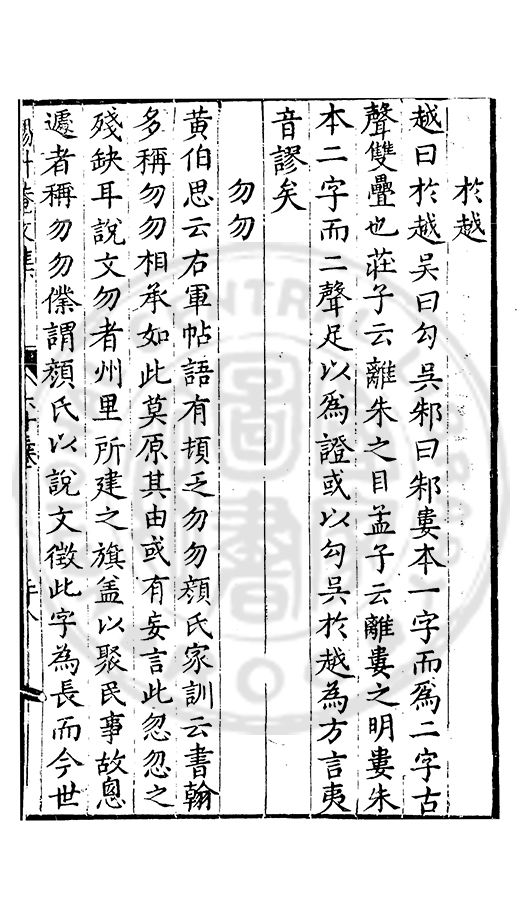 於越
越曰於越吳曰勾吳邾曰邾婁本一字而爲二字古
聲雙疊也莊子云離朱之目孟子云離婁之明婁朱
本二字而二聲足以爲證或以勾吳於越為方言夷
音謬矣
勿勿
黃伯思云右軍帖語有頓乏勿勿顏氏家訓云書翰
多稱勿勿相承如此莫原其由或有妄言此忽忽之
殘缺耳說文勿者州里所建之旗盖以聚民事故悤
遽者稱勿勿僕謂顏氏以說文徵此字為長而今世